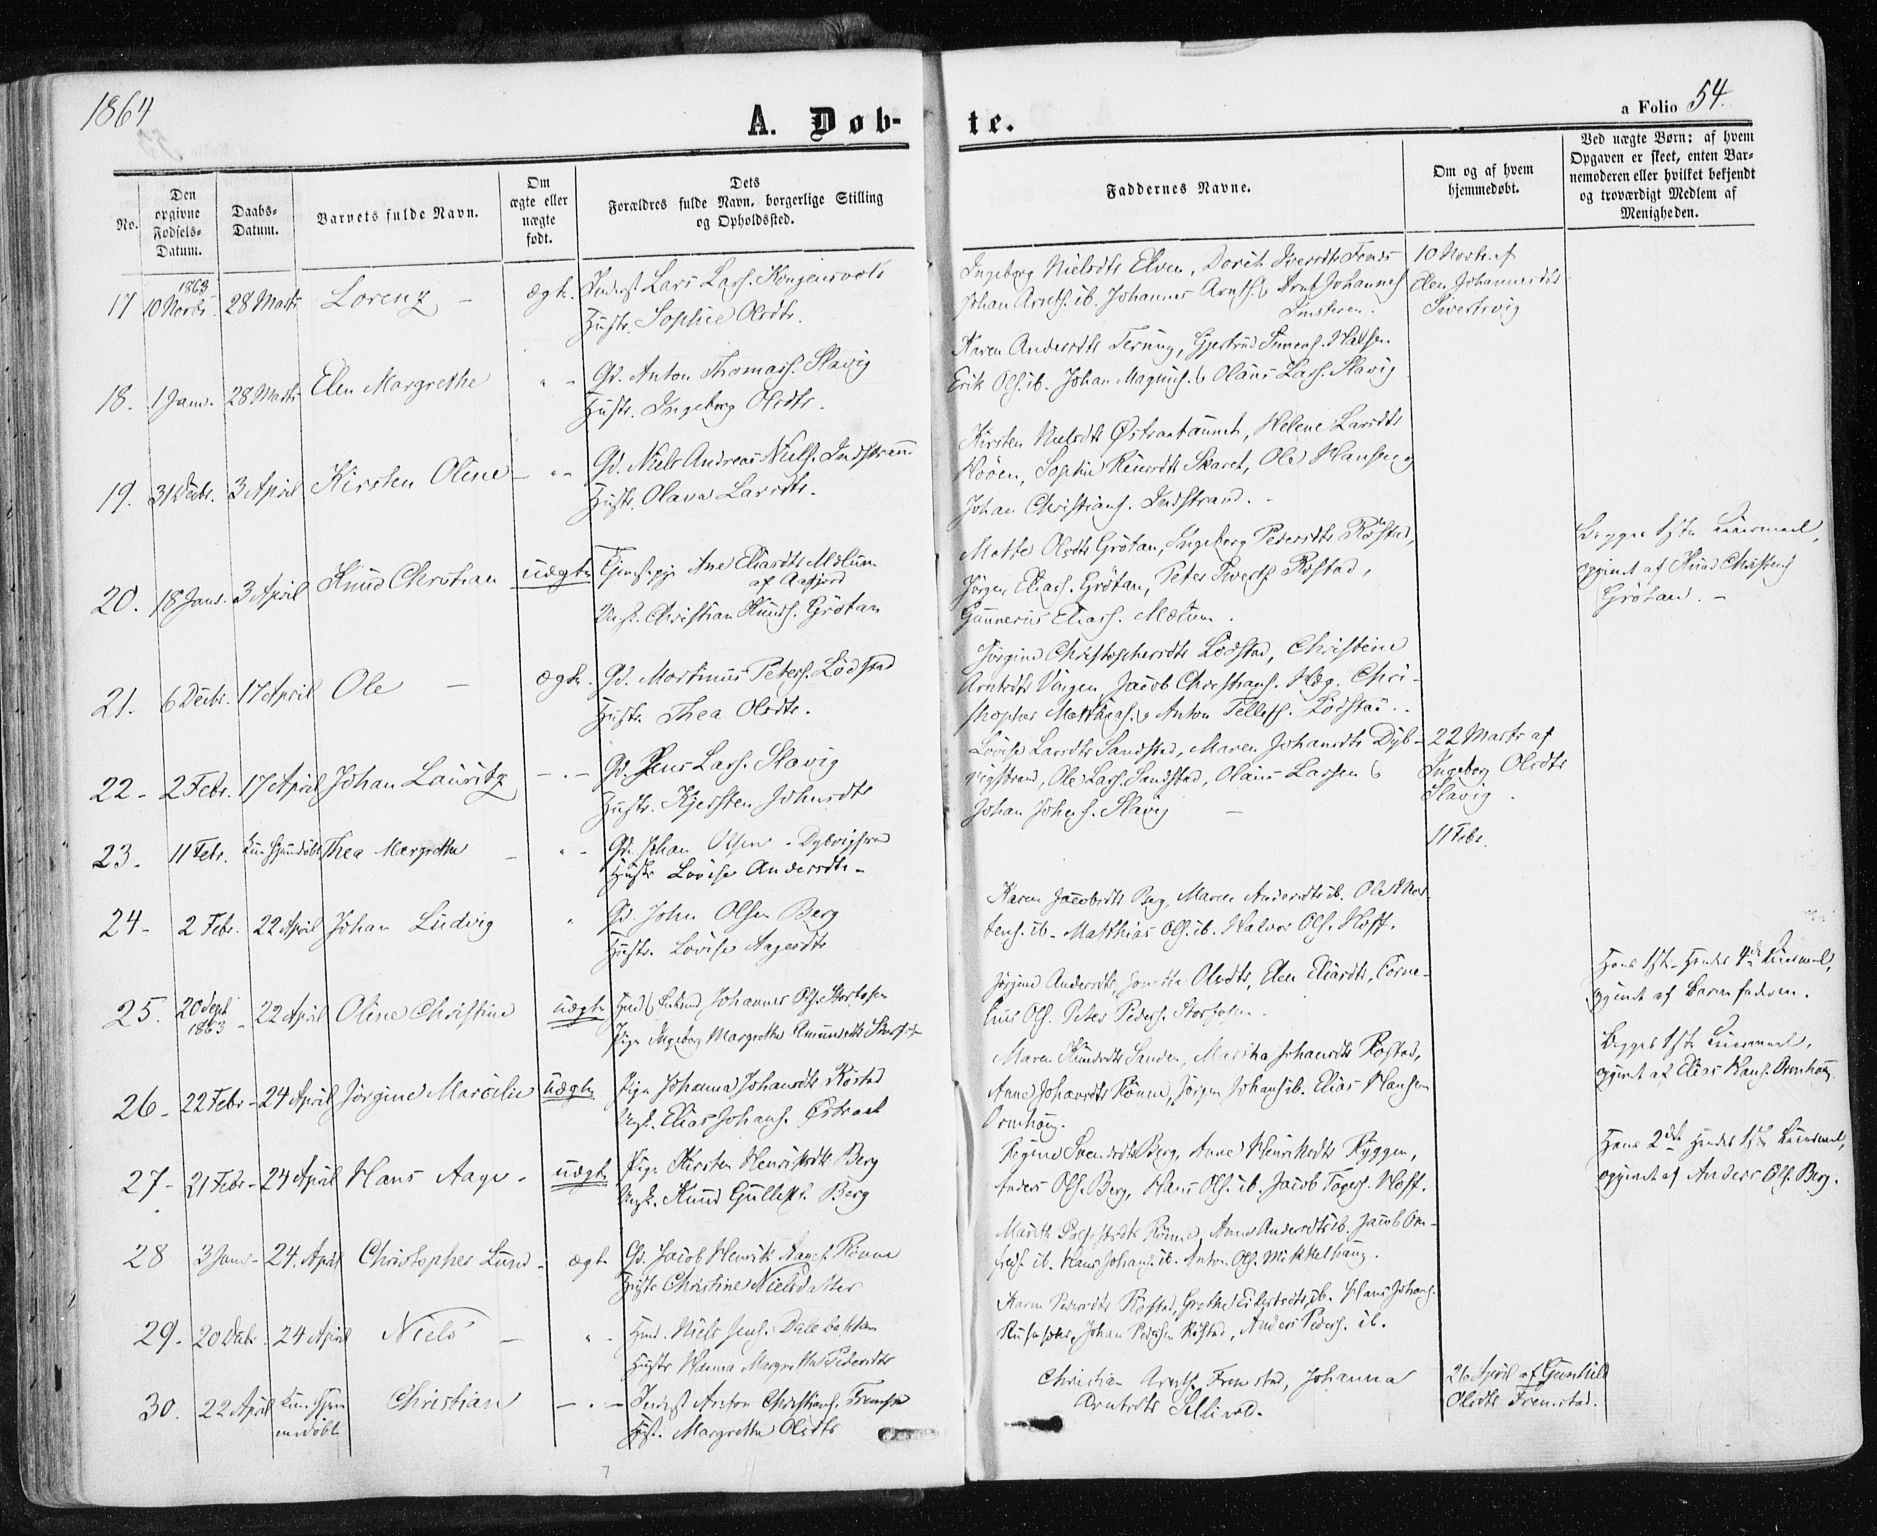 1864
A. Døb-
te.
a Folio 54.
No.
Den opgivne Fødsels-Datum.
Daabs-Datum.
Barnets fulde Navn.
Om ægte eller uægte født.
Dets Forældres fulde Navn, borgerlige Stilling og Opholdssted.
Faddernes Navne.
Om og af hvem hjemmedøbt.
Ved uægte Børn; af hvem Opgaven er skeet, enten Barnemoderen eller hvilket bekjendt og troværdigt Medlem af Menigheden.
17 1863 10 Novbr. 28 Marts Lorenz - ægte. Inderst Lars Lars.
Hustr. Sophie Olsdtr.
Ingeborg Nielsdtr Elven, Dorit
Johan Arnts. ib. Johannes Arnts. & Arnt Johannes
10 Novbr. af
Elen Johannesdtr
Sivertsvig
18. 1 Janr. 28 Marts Elen Margrethe " - Gd. Anton Thomas. Slavig
Hustr. Ingeborg Olsdtr.
Karen Andersdtr
Erik Ols. ib. Johan Magnus. & Olaus Lars. Slavig
19. 31 Decbr. 3 April Kirsten Oline - " - Gd. Niels Andreas Niels. Indstrand
Hustr. Olava Larsdtr.
Kirsten Nielsdtr Østraataunet, Helene Larsdtr
Skaret, Ole Hansen og
Johan Christians. Indstrand.
20. 18 Janr. 3 April Knud Christian uægte Tjenestepige Ane Eliasdtr Mælum
af Aafjord
Ungk. Christian Knuds. Grøtan
Mette Olsdtr Grøtan, Ingeborg Pedersdtr Røstad,
Jørgen Elias. Grøtan, Peter Siverts. Røstad,
Gunnerius Elias. Mælum.
Begges 1ste Leiermaal,
opgivet af Knud Christens
Grøtan. -
21. 6 Decbr. 17 April Ole - ægte. Gd. Martinus Peters. Lødstad
Hustr. Thea Olsdtr.
Jørgine Christophersdtr Lødstad, Christine
Arntsdtr Viggen, Jacob Christians. Hæg. Chri-
stopher Matthias. & Anton Tellefs. Lødstad.
22 - 2 Febr. 17 April Johan Lauritz - " - Gd. Jens Lars. Slavig
Hustr. Kjersten Johnsdtr
Lovise Larsdtr Sandstad, Maren Johansdtr Dyb-
vigstrand, Ole Lars. Sandstad, Olaus Larsen &
Johan Johns. Slavig -
22 Marts af
Ingeborg Olsdtr
Slavig.
23 - 11 Febr. Kun hjemdøbt Thea Margrethe - " - Gd. Johan Olsen
Hustr Lovise Andersdtr -
11 Febr.
24 - 2 Febr. 22 April Johan Ludvig " Gd. John Olsen Berg
Hustr. Lovise Aagesdtr
Karen Jacobsdtr Berg, Maren Andersdtr ib. Ole
ib. Matthias Ols. ib. Halvor Ols. Hoff.
25. 20 Sept 1863 - 22 April Oline Christine uægte Johannes Ols. Storfosen
Pige Ingeborg Margrethe
Jørgine Andersdtr, Olsdtr, Elen Eliasdtr, Corne-
lius Ols. Peter Peders. Storfosen.
Hans 1ste - Hendes 4de Leiermaal,
opgivet af Barnefaderen.
26 - 22 Febr - 24 April Jørgine Marselie uægte Pige Johanna Johansdtr Røstad
Ungk. Elias Johans. Østraat
Maren Knudsdtr Sanden, Martha Johansdtr Røstad,
Anne Johansdtr Rønne, Jørgen Johans. ib. Elias Hansen
Ormhaug.
Begges 1ste Leiermaal,
opgivet af Elias Hans. Ormhaug.
27 - 21 Febr - 24 April Hans Aage - uægte Pige Kirsten Henriksdtr Berg
Ungk. Knud Gulleks. Berg
Regine Svendsdtr Berg, Anne Henriksdtr Ryggen,
Anders Ols. Berg, Hans Ols. ib. Jacob Hoff.
Hans 2det Hendes 1ste Leiermaal,
opgivet af Anders Ols. Berg.
28 3 Janr - 24. April Christopher Lund - ægte Gd. Jacob Henrik Rønne
Hustr Christine Nielsdatter
Rønne, Anne Andersdtr ib. Jacob
ib. Hans Johans. ib. Anton Ols. Mikkelhaug.
29. 20 Decbr. 24 April Niels - " - Hmd. Niels Jens. Dalebakken
Hustr Hanna Margrethe Pedersdtr
Karen Pedersdtr Røstad, Grethe ib. Hans Johans.
Johan Pedersen Røstad, Anders Peders. ib.
30. 22 April Kun hjem-
medøbt Christian - " - Inderst Anton Christians. Fremstad
Hust. Margrethe Olsdtr
Christian Arnts. Fremstad, Johanna
Arntsdtr
26 April af Gunhild
Olsdtr Fremstad.